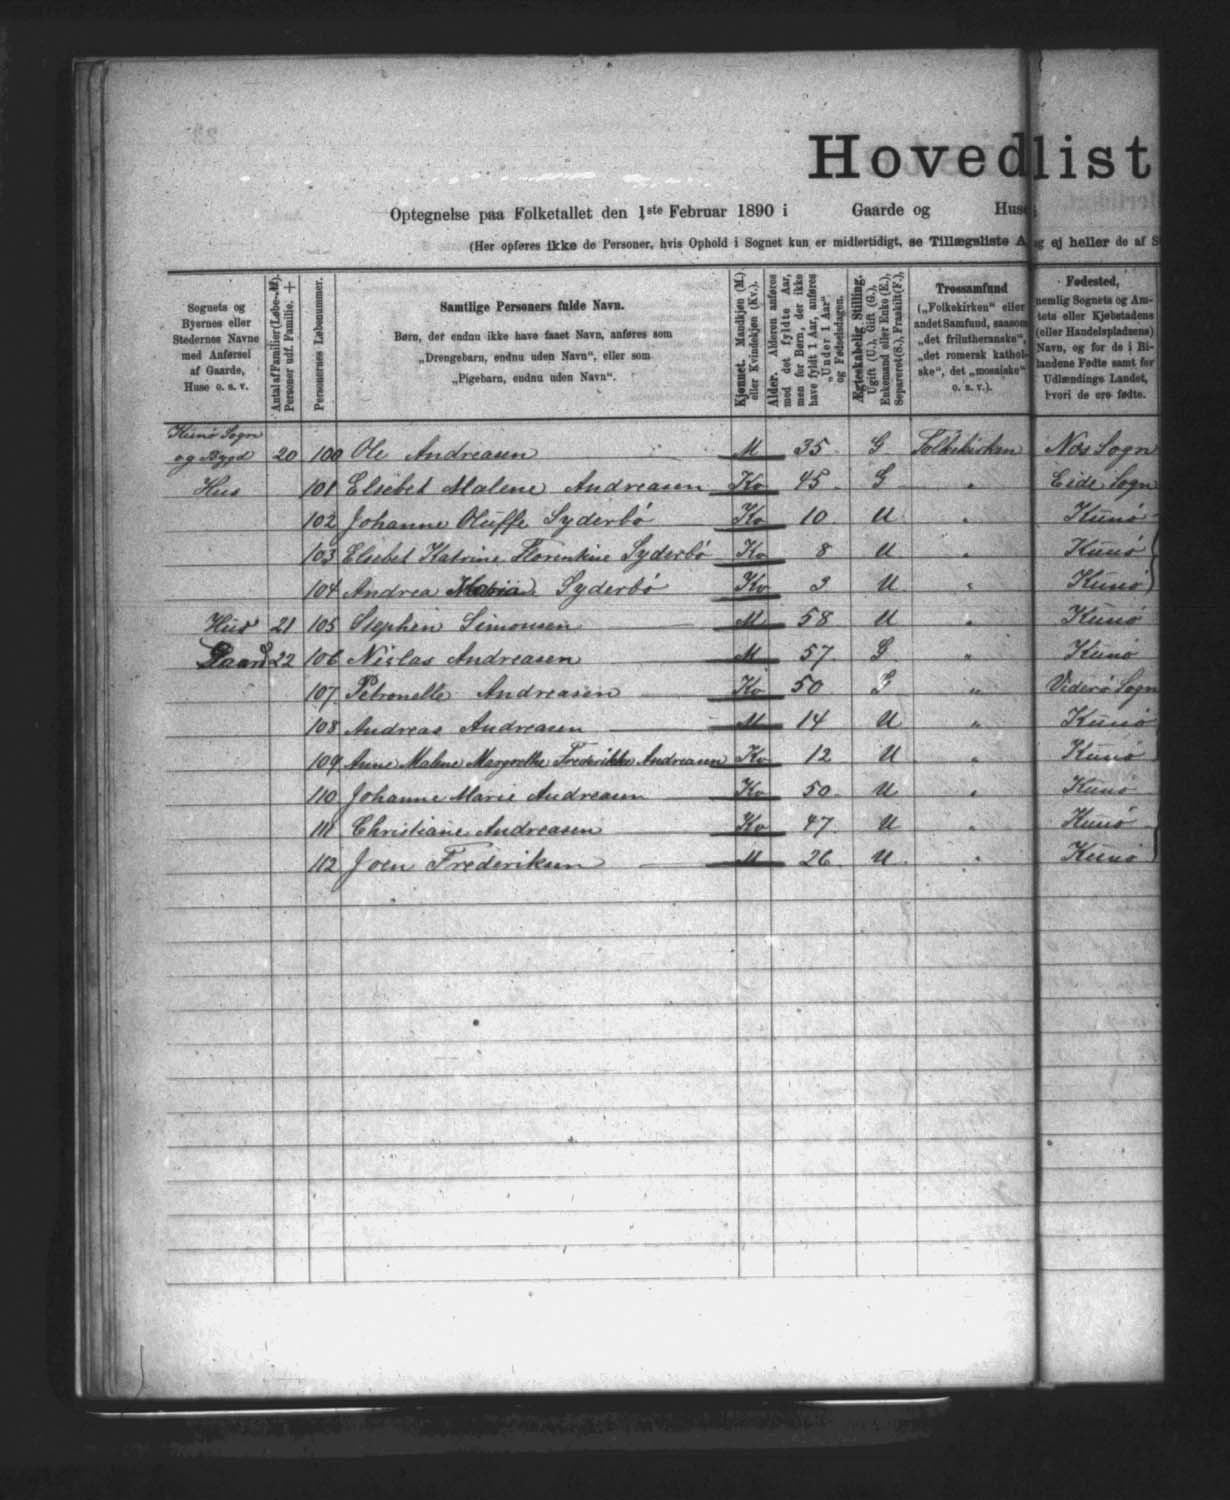 Hovedlist
Optegnelse paa Folketallet den 1ste Februar 1890 i Gaarde og Huse
(Her opføres ikke de Personer, hvis Ophold i Sognet kun er midlertidigt, se Tillægsliste A og ej heller de af S
Sognets og Byernes eller Stedernes Navne med Anførsel af Gaarde, Huse o. s. v.
Antal af Familier (Løbe-№). Personer udf. Familie. +
Personernes Løbenummer.
Samtlige Personers fulde Navn.
Børn, der endnu ikke have faaet Navn, anføres som
„Drengebarn, endnu uden Navn“, eller som
„Pigebarn, endnu uden Navn“.
Kjønnet. Mandkjøn (M.) eller Kvindekjøn (Kv.).
Alder. Alderen anføres med det fyldte Aar, men for Børn, der ikke have fyldt 1 Aar, anføres „Under 1 Aar“ og Fødselsdagen.
Ægteskabelig Stilling. Ugift (U.), Gift (G.), Enkemand eller Enke (E.), Separeret (S.), Fraskilt (F.),
Trossamfund („Folkekirken“ eller andet Samfund, saasom „det frilutheranske“, „det romersk katholske“, det „mosaiske“ o. s. v.).
Fødested, nemlig Sognets og Amtets eller Kjøbstadens (eller Handelspladsens) Navn, og for de i Bilandene Fødte samt for Udlændinge Landet, hvori de ere fødte.
Kunø Sogn
og Bygd 20 100 Ole Andreasen M 35 G Folkekirken Nes Sogn
Hus 101 Elsebet Malene Andreasen Kv 45 G „ Eide Sogn
102 Johanne Oluffe Syderbó Kv 10 U „ Kunó
103 Elsebet Katrine Florentine Syderbó Kv 8 U „ Kunó
104 Andrea Maria Syderbó Kv 3 U „ Kunó
Hus 21 105 Stephen Simonsen M 58 U „ Kunó
Gaard 22 106 Niclas Andreasen M 57 G „ Kunó
107 Petronelle Andreasen Kv 50 G „ Viderø Sogn
108 Andreas Andreasen M 14 U „ Kunó
109 Anne Malene Margrethe Frederikke Andreasen Kv 12 U „ Kunó
110 Johanne Marie Andreasen Kv 50 U „ Kunó
111 Christiane Andreasen Kv 47 U „ Kunó
112 Joen Frederiksen M 26 U „ Kunó